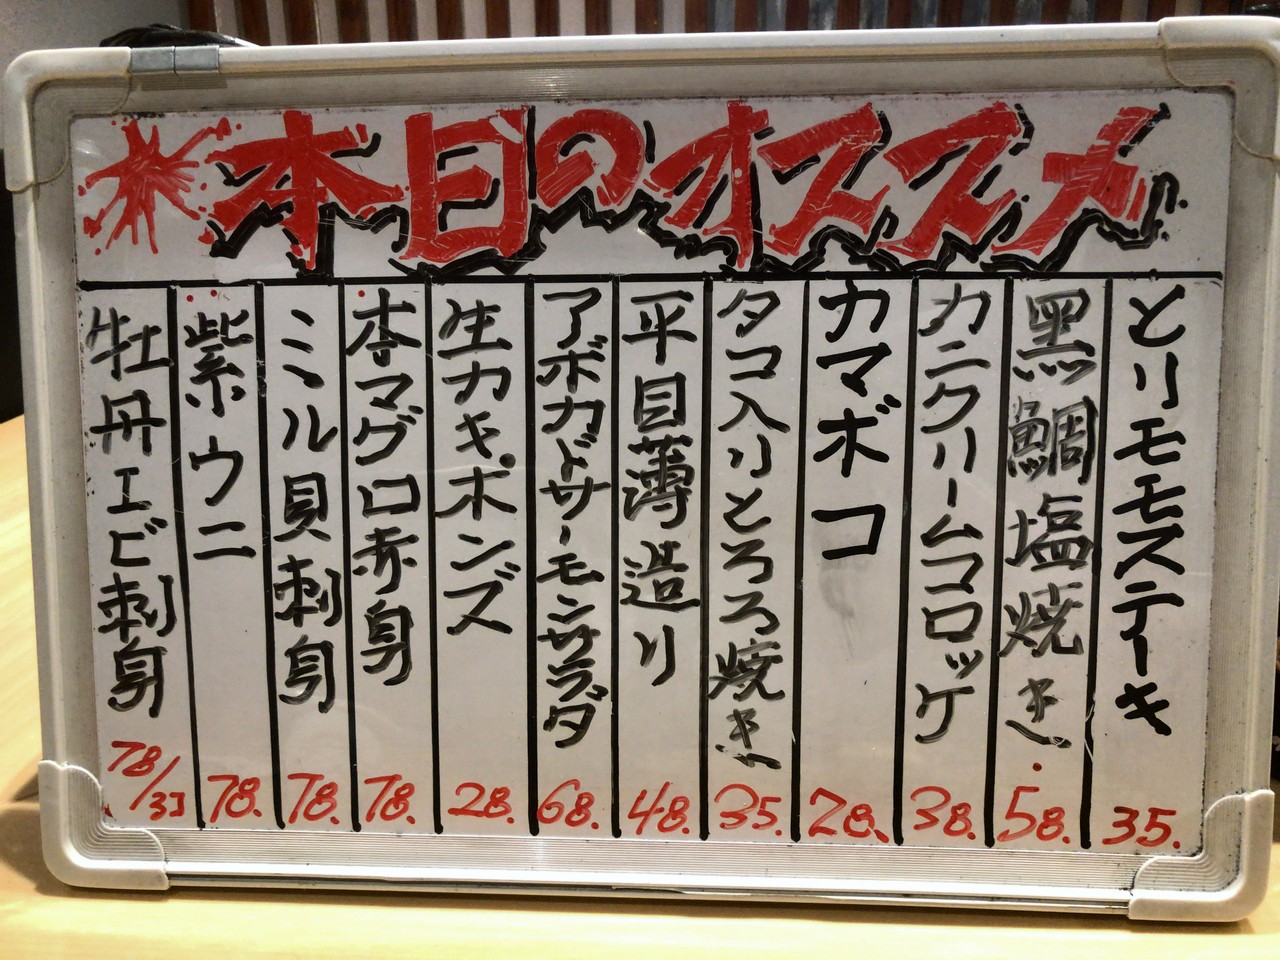 本日のオススメ
とりモモステーキ 35.
黒鯛塩焼き 58.
カニクリームコロッケ 38.
カマボコ 28.
タコ入りとろろ焼き 35.
平目薄造り 48.
アボカドサーモンサラダ 68.
生カキポンズ 28.
本マグロ赤身 78.
ミル貝刺身 78.
紫ウニ 78.
牡丹エビ刺身 78/3コ